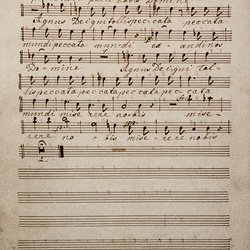 nobis Domine
Agnus Dei qui tollis peccata peccata
mundi peccata mundi exaudi nos
Domine Agnus Dei qui tol-
lis peccata peccata peccata pecca
mundi miserere nobis mise-
rere no-bis miserere nobis